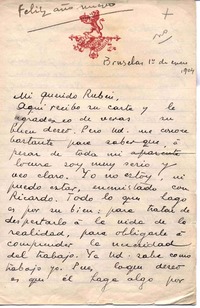 Feliz año nuevo
Bruselas 1º de enero
1904
Mi querido Rubén,
Aquí recibo su carta y le
agradezco de veras su
buen deseo. Pero ud. me conoce
bastante para saber que, á
pesar de toda mi aparente
locura soy muy serio y
veo claro. Yo no estoy, ni
puedo estar, enemistado con
Ricardo. Todo lo que hago
es por su bien; para tratar de
despertarlo á la vida de la
realidad, para obligarle á
comprender la necesidad
del trabajo. Ya ud. sabe como
trabajo yo. Pues, lo que deseo
es que el haga algo por